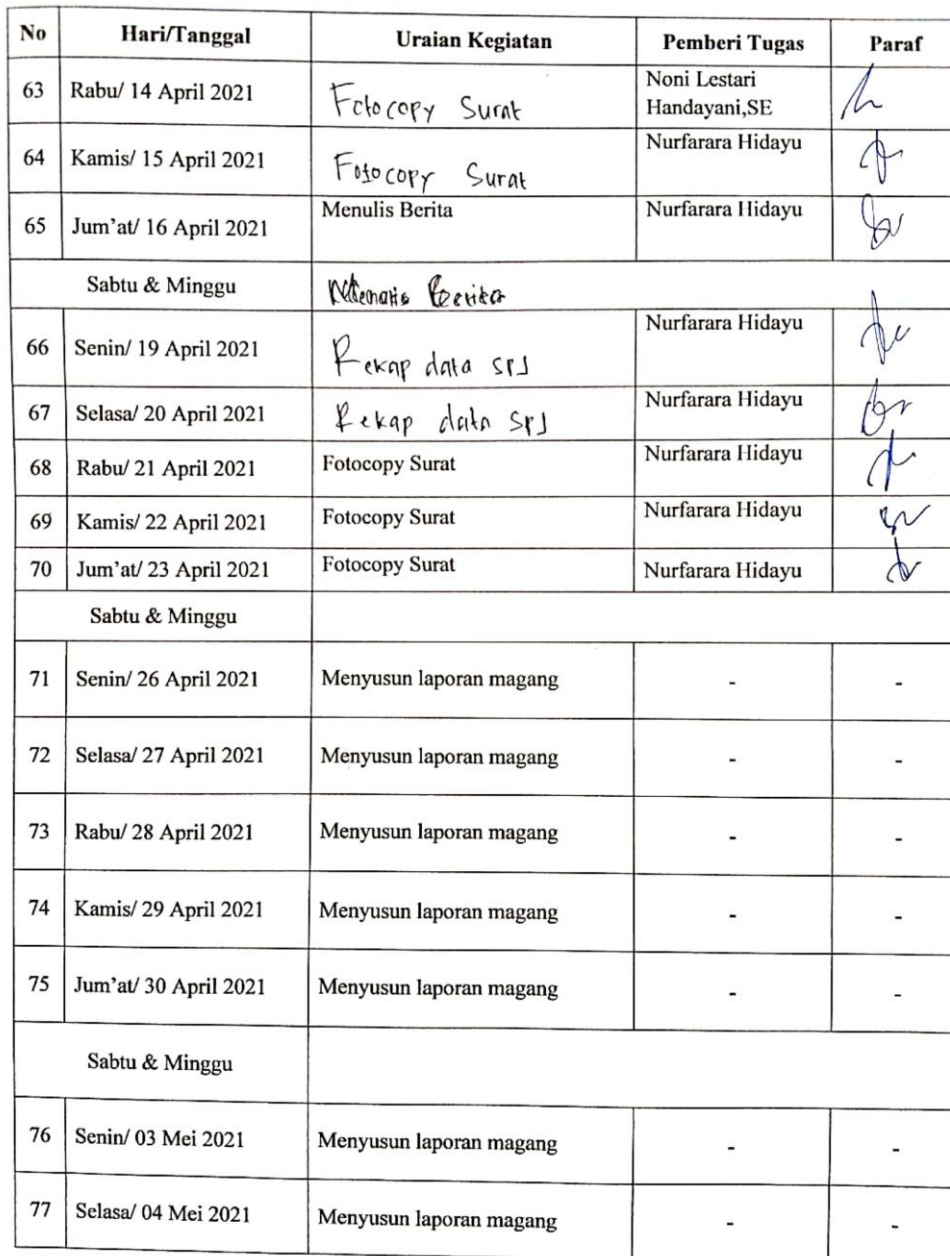 No Hari/Tanggal Uraian Kegiatan Pemberi Tugas Paraf
63 Rabu/ 14 April 2021 Fotocopy Surat Noni Lestari
Handayani,SE
64 Kamis/ 15 April 2021 Fotocopy Surat Nurfarara Hidayu
65 Jum'at/ 16 April 2021 Menulis Berita Nurfarara Hidayu
Sabtu & Minggu
66 Senin/ 19 April 2021 Rekap data SPJ Nurfarara Hidayu
67 Selasa/ 20 April 2021 Rekap data SPJ Nurfarara Hidayu
68 Rabu/ 21 April 2021 Fotocopy Surat Nurfarara Hidayu
69 Kamis/ 22 April 2021 Fotocopy Surat Nurfarara Hidayu
70 Jum'at/ 23 April 2021 Fotocopy Surat Nurfarara Hidayu
Sabtu & Minggu
71 Senin/ 26 April 2021 Menyusun laporan magang - -
72 Selasa/ 27 April 2021 Menyusun laporan magang - -
73 Rabu/ 28 April 2021 Menyusun laporan magang - -
74 Kamis/ 29 April 2021 Menyusun laporan magang - -
75 Jum'at/ 30 April 2021 Menyusun laporan magang - -
Sabtu & Minggu
76 Senin/ 03 Mei 2021 Menyusun laporan magang - -
77 Selasa/ 04 Mei 2021 Menyusun laporan magang - -